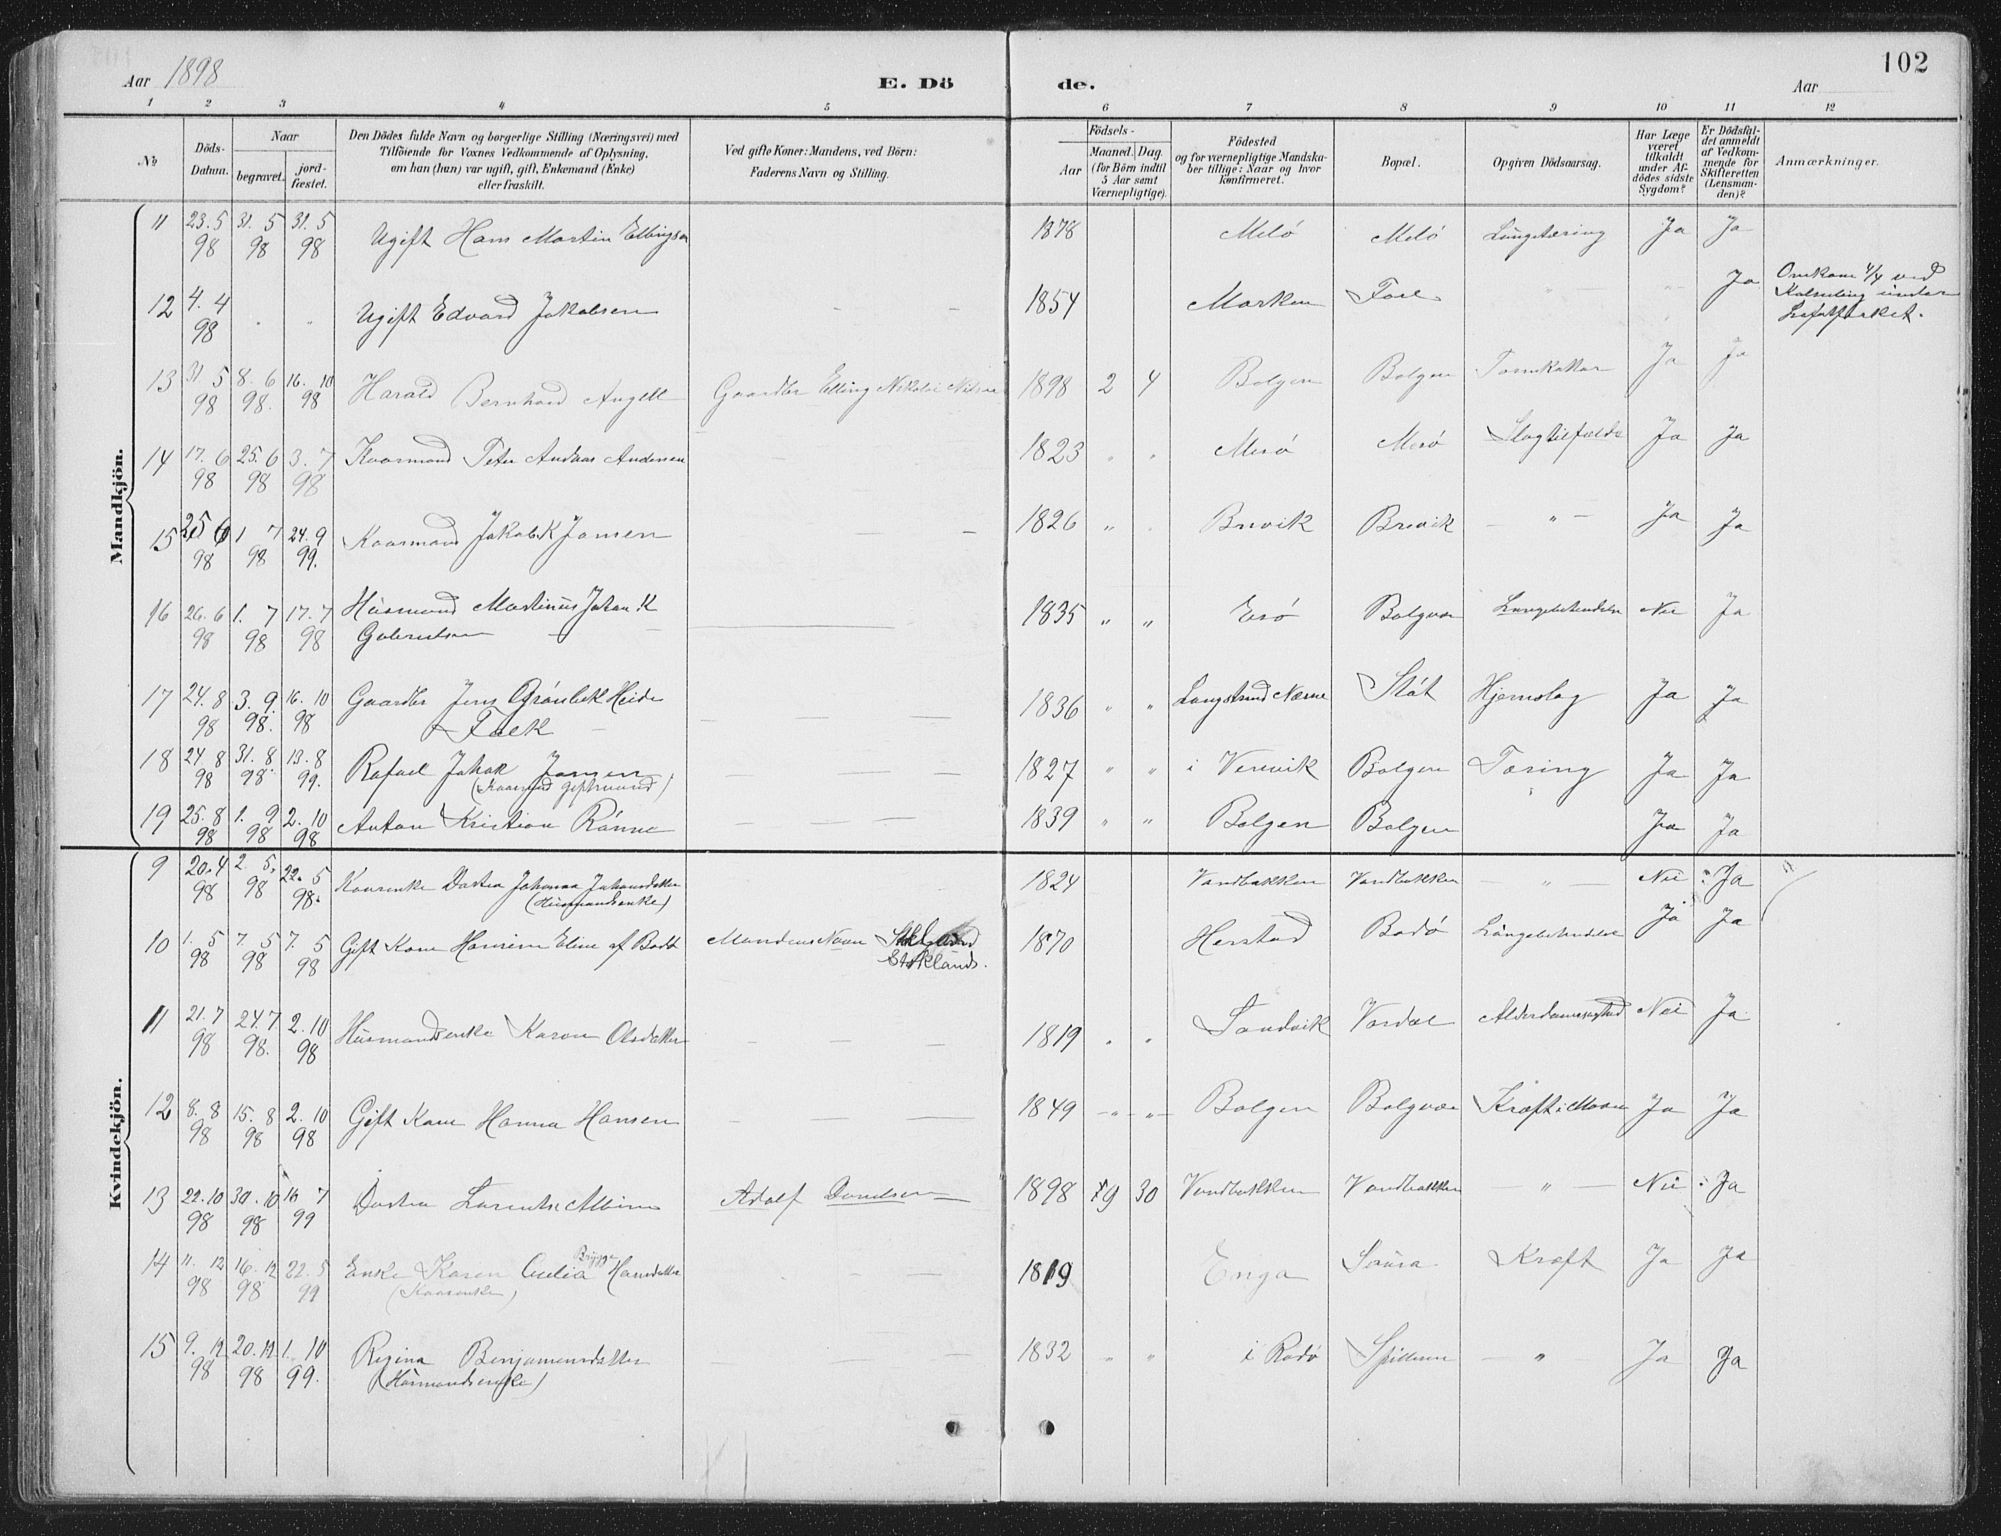 102
Aar 1898
E. Döde.
Aar
1 2 3 4 5 6 7 8 9 10 11 12
№
Döds-Datum.
Naar
begravet.
jord-fæstet.
Den Dödes fulde Navn og borgerlige Stilling (Næringsvei) med
Tilföiende for Voxnes Vedkommende af Oplysning,
om han (hun) var ugift, gift, Enkemand (Enke)
eller fraskilt.
Ved gifte Koner: Mandens, ved Börn:
Faderens Navn og Stilling.
Födsels-
Aar
Maaned. Dag
(for Börn indtil
5 Aar samt
Værnepligtige).
Födested
og for værnepligtige Mandska-
ber tillige: Naar og hvor
konfirmeret.
Bopæl.
Opgiven Dödsaarsag.
Har Læge
været
tilkaldt
under Af-
dödes sidste
Sygdom?
Er Dödsfal-
det anmeldt
af Vedkom-
mende for
Skifteretten
(Lensman-
den)?
Anmærkninger.
Mandkjön.
11 23.5 98 31.5 98 31.5 98 Ugift Hans Martin Ellingsen 1878 Melö Melö Lungetæring Ja Ja
12 4.4 98 " " Ugift Edvard Jakobsen — — 1854 Marken Fore " — — Ja Omkom 4/4 ved
Kolseiling under
Lofotfisket.
13 31 5 98 8.6 98. 16.10 98 Harald Bernhard Angell Gaardbr Elling Nikolai Nilsen 1898 2 4 Bolgen Bolgen Ja Ja
14 17.6 98 25.6 98 3.7 98 Kaarmand Peter Andreas Andersen 1823 " " Mesö Mesö Slagtilfælde Ja Ja
15 25 6 98 1 7 98 24.9 99. Kaarmand Jakob K Jansen — — 1826 " " Brevik Brevik — " — Ja Ja
16 26.6 98 1.7 98 17.7 98 Husmand Martinus Johan K
Gabrielsen — — 1835 " " Esö Bolgvær Lungebetændelse Nei Ja
17 24.8 98 3.9. 98. 16.10 98 Gaardbr Jens Grönbek Heide
Falk — — — 1836 " " Langstrand Næsne Stöt Hjerneslag Ja Ja
18 24.8 98 31.8 98. 13.8 99. Rafael Johak Jansen
(Kaarmand gift mand) — — — 1827 " " i Verevik Bolgen Tæring Ja Ja
19 25.8 98 1.9 98 2.10 98 Anton Kristian Rönne — — — 1839 " " Bolgen Bolgen Ja Ja
Kvindekjön.
9 20.4 98 2.5. 98 22.5 98. Kaarenke Dortea Johanna Johansdatter
(Husmandsenke) 1824 Vandbakken Vandbakken — " — Nei Ja
10 1.5 98 7.5 98 7.5 98 Gift Kone Hansine Eline af Bodö Mandens Navn
Stoklands. 1870 Herstad Bodö Lungebetændelse Ja Ja
11 21.7 98 24.7 98. 2.10 98 Husmandsenke Karen Olsdatter — — — 1819 " " Sandvik Vardal Alderdomssvaghed Nei Ja
12 8.8 98 15.8 98 2.10 98 Gift Kone Hanna Hansen — — — 1849 — " — " — Bolgen Bolgvær Kræft i Maven Ja Ja
13 22.10 98 30.10 98 16 7 99 Dortea Laurentse Albine Adolf Danielsen 1898 9 30 Vandbakken Vandbakken — " — Nei Ja
14 11.12 98 16.12 98 22.5 99 Enke Karen Cecilia Brygge Hansdatter
(Kaarenke) — — 1819 Enga Saura Kræft Ja Ja
15 9.12 98 20.12 98 1.10 99. Regina Benjamensdatter
(Husmandsenke) — — 1832 " " i Rodö Spilderen — " — Ja Ja